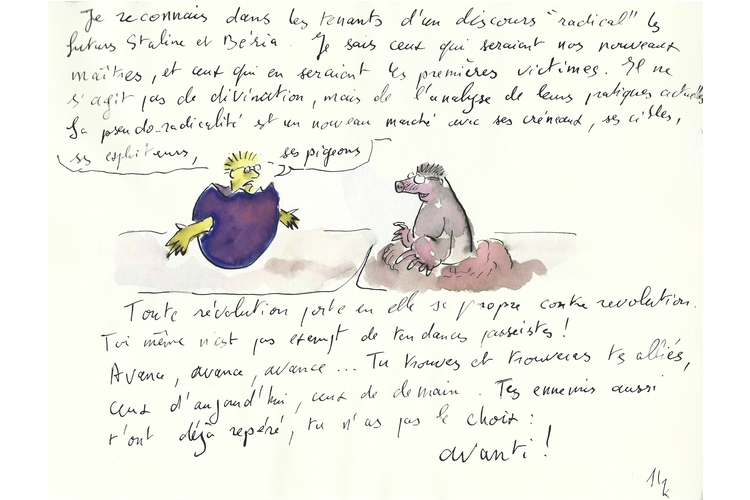 Je reconnais dans les tenants d'un discours "radical" les
futurs Staline et Béria. Je sais ceux qui seraient nos nouveaux
maîtres, et ceux qui en seraient les premières victimes. Il ne
s'agit pas de divination, mais de l'analyse de leurs pratiques actuelles
La pseudo-radicalité est un nouveau marché avec ses créneaux, ses cibles,
ses exploiteurs, ses pigeons
Toute révolution porte en elle sa propre contre revolution.
Toi même n'est pas exempt de tendances passéistes !
Avance, avance, avance... Tu trouves et trouveras tes alliés,
ceux d'aujourd'hui, ceux de demain. Tes ennemis aussi
t'ont déjà repéré, tu n'as pas le choix :
avanti !